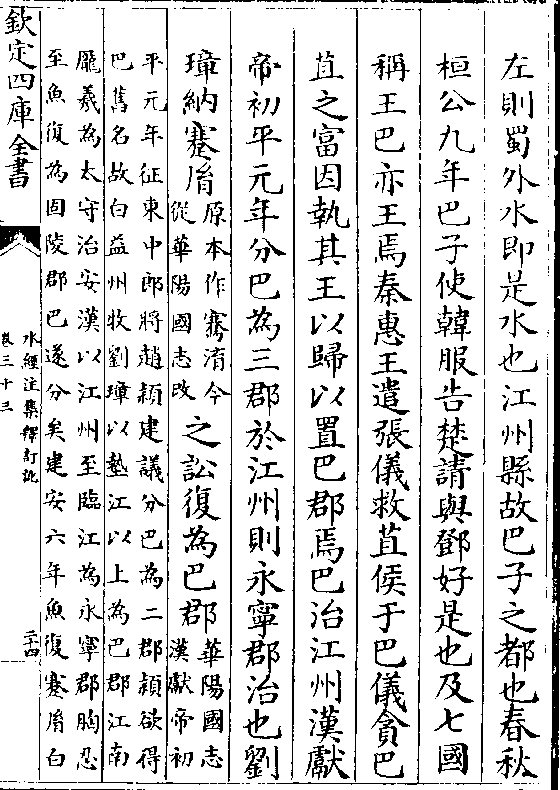 左則蜀外水即是水也江州縣故巴子之都也春秋
桓公九年巴子使韓服告楚請與鄧好是也及七國
稱王巴亦王焉秦惠王遣張儀救苴侯于巴儀貪巴
苴之富因執其王以歸以置巴郡焉巴治江州漢獻
帝初平元年分巴為三郡於江州則永寧郡治也劉
璋納蹇胤
原本作騫淯今
從華陽國志改
之訟復為巴郡
華陽國志
漢獻帝初
平元年征東中郎將趙頴建議分巴為二郡頴欲得
巴舊名故白益州牧劉璋以墊江以上為巴郡江南
龎羲為太守治安漢以江州至臨江為永寧郡朐忍
至魚復為固陵郡巴遂分矣建安六年魚復蹇胤白
欽定四庫全書
水經注集釋訂訛
卷三十三
二十四